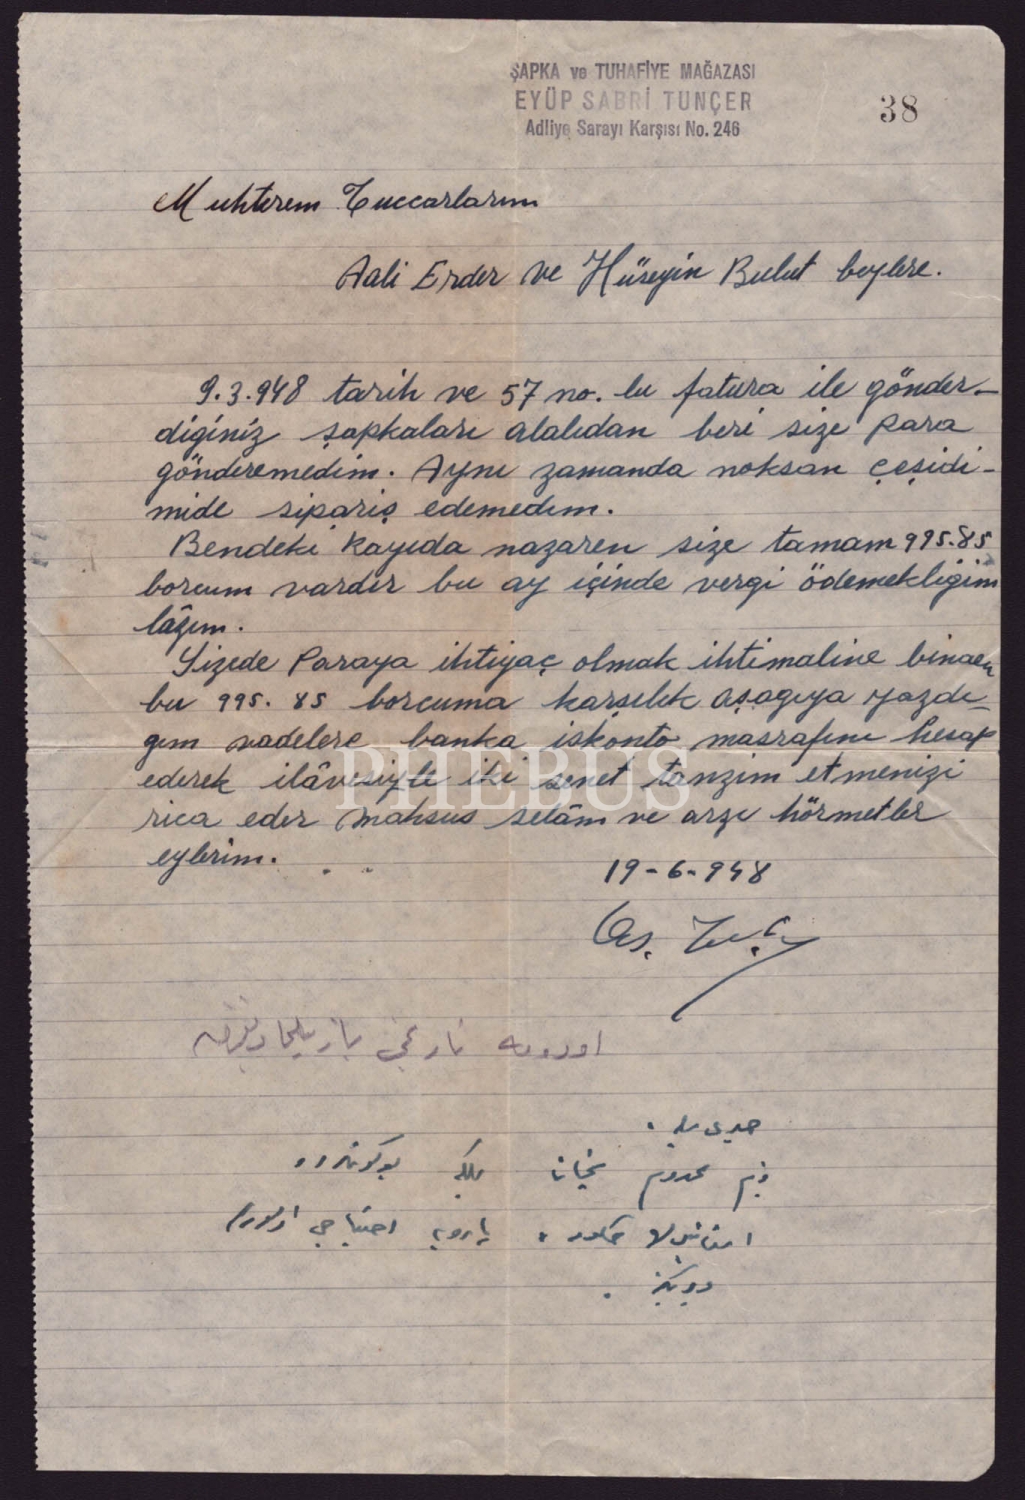 ŞAPKA ve TUHAFİYE MAĞAZASI
EYÜP SABRİ TUNÇER
Adliye Sarayı Karşısı No. 246
38
Muhterem Tuccarlarım
Aali Erder ve Hüseyin Bulut beylere.
9.3.948 tarih ve 57 no. lu fatura ile gönder-
diğiniz şapkaları alalıdan beri size para
gönderemedim. Aynı zamanda noksan çeşidi-
mide sipariş edemedim.
Bendeki kayıda nazaren size tamam 995.85
borcum vardır bu ay içinde vergi ödemekliğim
lâzım.
Sizede Paraya ihtiyaç olmak ihtimaline binaen
bu 995.85 borcuma karşılık aşagıya yazdı-
gım vadelere banka iskonto masrafını hesap
ederek ilâvesiyle iki senet tanzim etmenizi
rica eder mahsus selâm ve arzı hörmetler
eylerim.
19-6-948
PHEBUS
بوكونلرده
پارويه احتياجى